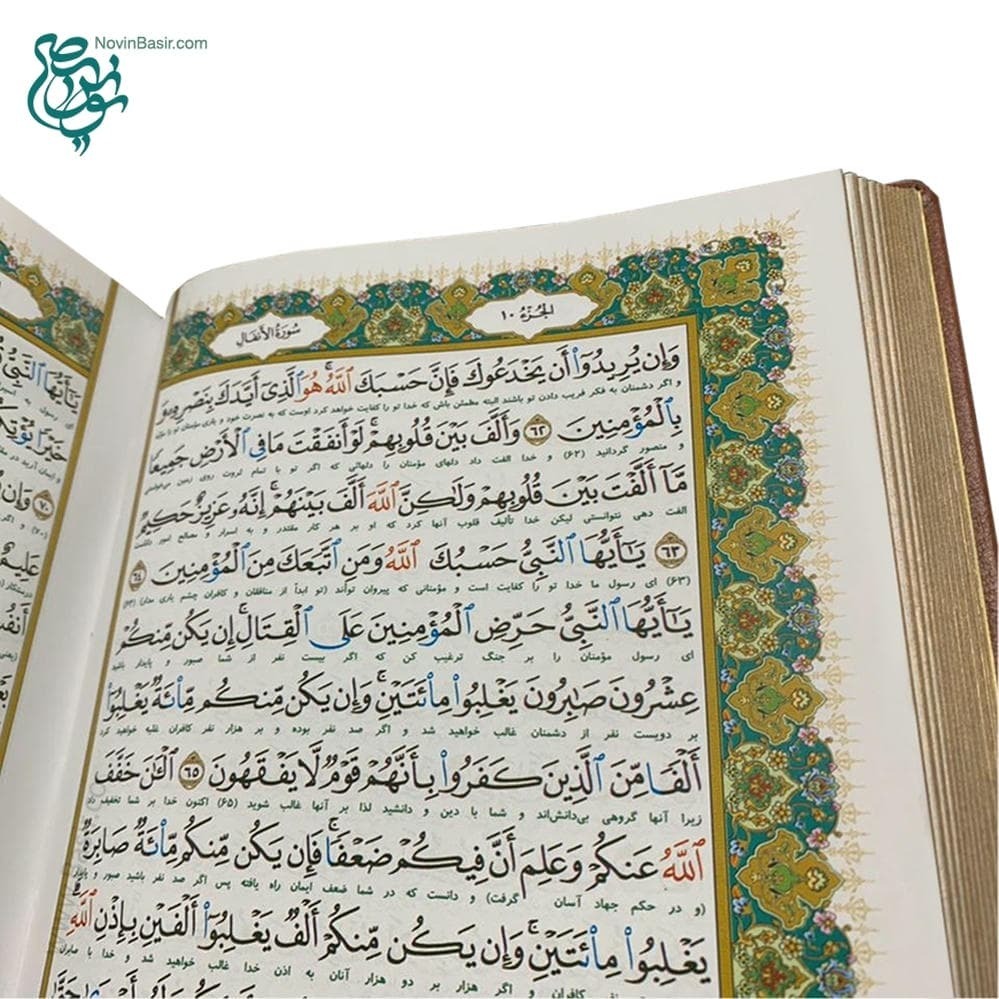 NovinBasir.com
الجزء ١٠
سورة الأنفال
وَإِن يُرِيدُوٓا۟ أَن يَخْدَعُوكَ فَإِنَّ حَسْبَكَ ٱللَّهُ ۚ هُوَ ٱلَّذِىٓ أَيَّدَكَ بِنَصْرِهِۦ وَ
و اگر دشمنان به فکر فریب دادن تو باشند البته مطمئن باش که خدا تو را کفایت خواهد کرد اوست که به نصرت خود و یاری مؤمنان تو را مؤید
بِٱلْمُؤْمِنِينَ ﴿٦٢﴾ وَأَلَّفَ بَيْنَ قُلُوبِهِمْ ۚ لَوْ أَنفَقْتَ مَا فِى ٱلْأَرْضِ جَمِيعًا
و منصور گردانید (۶۲) و خدا الفت داد دلهای مؤمنان را دلهائی که اگر تو با تمام ثروت روی زمین می‌خواستی
مَّآ أَلَّفْتَ بَيْنَ قُلُوبِهِمْ وَلَٰكِنَّ ٱللَّهَ أَلَّفَ بَيْنَهُمْ ۚ إِنَّهُۥ عَزِيزٌ حَكِيمٌ
الفت دهی نتوانستی لیکن خدا تألیف قلوب آنها کرد که او بر هر کار مقتدر و به اسرار و مصالح امور داناست
﴿٦٣﴾ يَٰٓأَيُّهَا ٱلنَّبِىُّ حَسْبُكَ ٱللَّهُ وَمَنِ ٱتَّبَعَكَ مِنَ ٱلْمُؤْمِنِينَ ﴿٦٤﴾
(۶۳) ای رسول ما خدا تو را کفایت است و مؤمنانی که پیروان توأند (تو ابداً از منافقان و کافران چشم یاری مدار) (۶۴)
يَٰٓأَيُّهَا ٱلنَّبِىُّ حَرِّضِ ٱلْمُؤْمِنِينَ عَلَى ٱلْقِتَالِ ۚ إِن يَكُن مِّنكُمْ
ای رسول مؤمنان را بر جنگ ترغیب کن که اگر بیست نفر از شما صبور و پایدار باشید
عِشْرُونَ صَٰبِرُونَ يَغْلِبُوا۟ مِا۟ئَتَيْنِ ۚ وَإِن يَكُن مِّنكُم مِّا۟ئَةٌ يَغْلِبُوٓا۟
بر دویست نفر از دشمنان غالب خواهید شد و اگر صد نفر بوده و بر هزار نفر کافران غلبه خواهید کرد
أَلْفًا مِّنَ ٱلَّذِينَ كَفَرُوا۟ بِأَنَّهُمْ قَوْمٌ لَّا يَفْقَهُونَ ﴿٦٥﴾ ٱلْـَٰٔنَ خَفَّفَ
زیرا آنها گروهی بی‌دانش‌اند و شما با دین و دانشید لذا بر آنها غالب شوید (۶۵) اکنون خدا بر شما تخفیف داد
ٱللَّهُ عَنكُمْ وَعَلِمَ أَنَّ فِيكُمْ ضَعْفًا ۚ فَإِن يَكُن مِّنكُم مِّا۟ئَةٌ صَابِرَةٌ
(و در حکم جهاد آسان گرفت) و دانست که در شما ضعف ایمان راه یافته پس اگر صد نفر باشید صبور و پایدار
يَغْلِبُوا۟ مِا۟ئَتَيْنِ ۚ وَإِن يَكُن مِّنكُمْ أَلْفٌ يَغْلِبُوٓا۟ أَلْفَيْنِ بِإِذْنِ ٱللَّهِ
نفر کافران و اگر هزار بر دو هزار آنان به اذن خدا غالب خواهید شد و خدا با صابران
يَٰٓأَيُّهَا ٱلنَّبِىُّ
خَيْرًا
﴿٧٠﴾ وَإِن
عَلِيمٌ